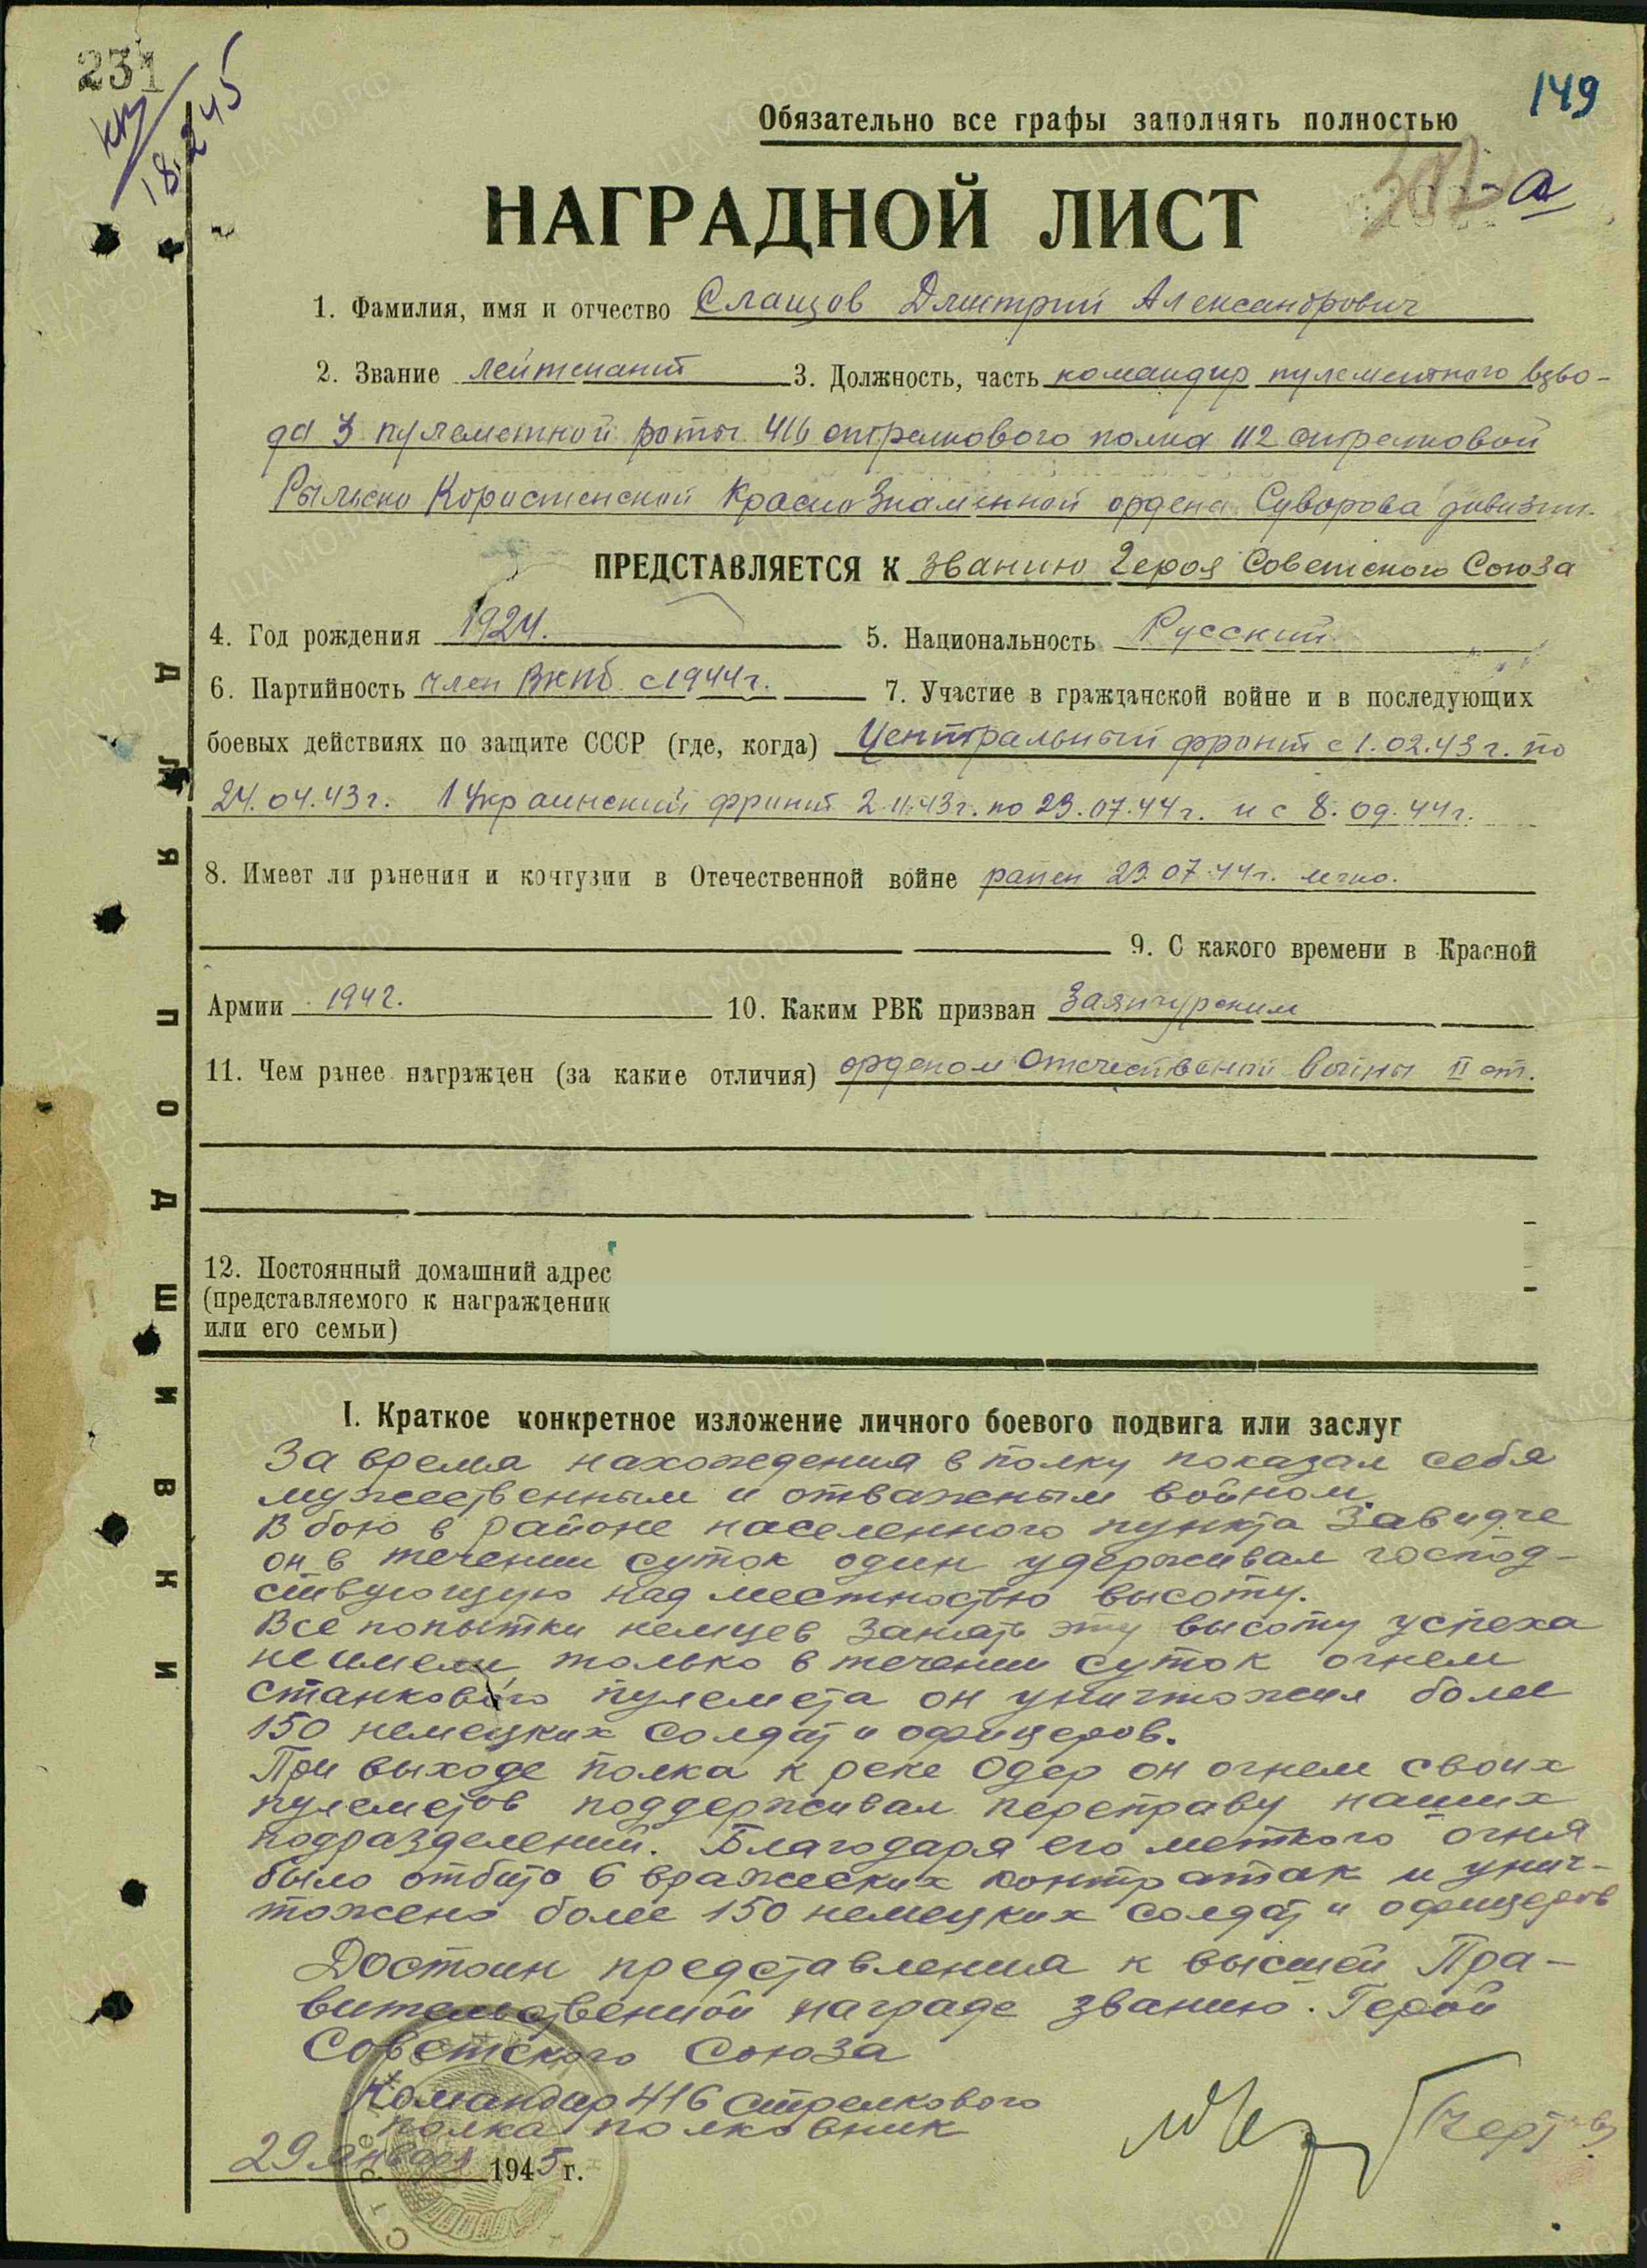 231
кт
18.2.45
149
Обязательно все графы заполнять полностью
302-а
НАГРАДНОЙ ЛИСТ
1. Фамилия, имя и отчество Слащов Дмитрий Александрович
2. Звание лейтенант 3. Должность, часть командир пулеметного взво-
да 3 пулеметной роты 416 стрелкового полка 112 стрелковой
Рыльско Коростенской Краснознаменной ордена Суворова дивизии.
ПРЕДСТАВЛЯЕТСЯ К званию Героя Советского Союза
4. Год рождения 1924. 5. Национальность Русский
6. Партийность член ВКПб с 1944г. 7. Участие в гражданской войне и в последующих
боевых действиях по защите СССР (где, когда) Центральный фронт с 1.02.43 г. по
24.04.43 г. 1 Украинский фронт 2.11.43г. по 23.07.44 г. и с 8.09.44г.
8. Имеет ли ранения и контузии в Отечественной войне ранен 23.07.44г. легко.
9. С какого времени в Красной
Армии 1942. 10. Каким РВК призван
11. Чем ранее награжден (за какие отличия) орденом Отечественной войны II ст.
12. Постоянный домашний адрес
(представляемого к награждению
или его семьи)
I. Краткое конкретное изложение личного боевого подвига или заслуг
За время нахождения в полку показал себя
мужественным и отважным войном.
В бою в районе населенного пункта Завидче
он в течении суток один удерживал господ-
ствующую над местностью высоту.
Все попытки немцев занять эту высоту успеха
не имели только в течении суток огнем
станкового пулемета он уничтожил более
150 немецких солдат и офицеров.
При выходе полка к реке Одер он огнем своих
пулеметов поддерживал переправу наших
подразделений. Благодаря его меткого огня
было отбито 6 вражеских контратак и унич-
тожено более 150 немецких солдат и офицеров
Достоин представления к высшей Пра-
вительственной награде званию. Герой
Советского Союза
Командир 416 стрелкового
полка полковник
29 января 1945 г.
ДЛЯ ПОДШИВКИ